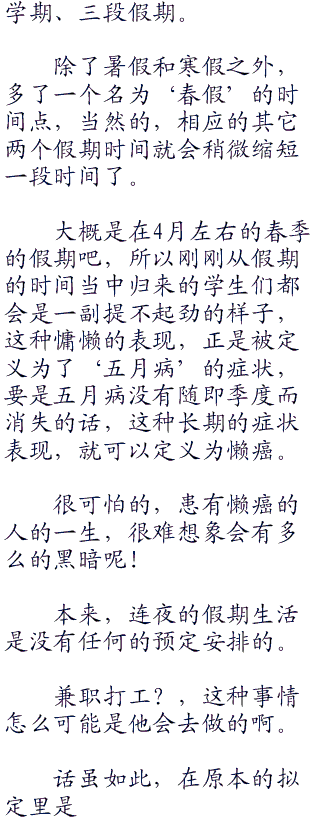 学期、三段假期。
除了暑假和寒假之外，
多了一个名为‘春假’的时
间点，当然的，相应的其它
两个假期时间就会稍微缩短
一段时间了。
大概是在4月左右的春季
的假期吧，所以刚刚从假期
的时间当中归来的学生们都
会是一副提不起劲的样子，
这种慵懒的表现，正是被定
义为了‘五月病’的症状，
要是五月病没有随即季度而
消失的话，这种长期的症状
表现，就可以定义为懒癌。
很可怕的，患有懒癌的
人的一生，很难想象会有多
么的黑暗呢！
本来，连夜的假期生活
是没有任何的预定安排的。
兼职打工？，这种事情
怎么可能是他会去做的啊。
话虽如此，在原本的拟
定里是